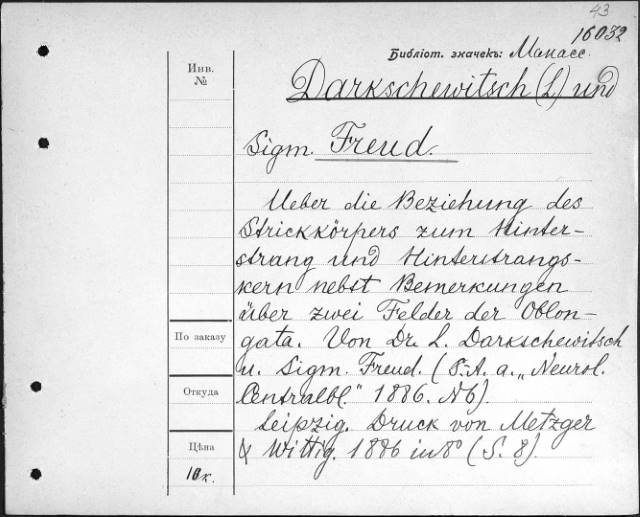 43
16032
Библіот. значекъ: Манасс.
Инв.
№
Darkschewitsch (L) und
Sigm. Freud.
Ueber die Beziehung des
Strickkörpers zum Hinter-
strang und Hinterstrangs-
kern nebst Bemerkungen
über zwei Felder der Oblon-
gata. Von Dr. L. Darkschewitsch
u. Sigm. Freud. (S.A. a. „Neurol.
Centralbl." 1886. N6).
Leipzig. Druck von Metzger
& Wittig. 1886 in 8° (S. 8).
По заказу
Откуда
Цѣна
10 к.